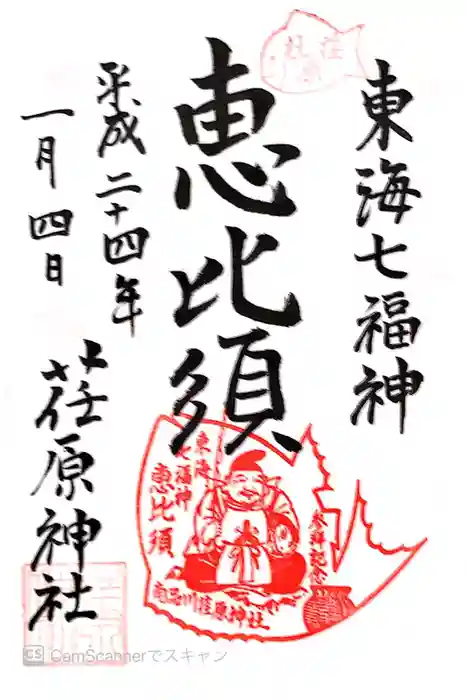 東海七福神
恵比須
平成二十四年
一月四日
荏原神社
荏原
東海
七福神
恵比須
参拝記念
南品川荏原神社
CS CamScannerでスキャン